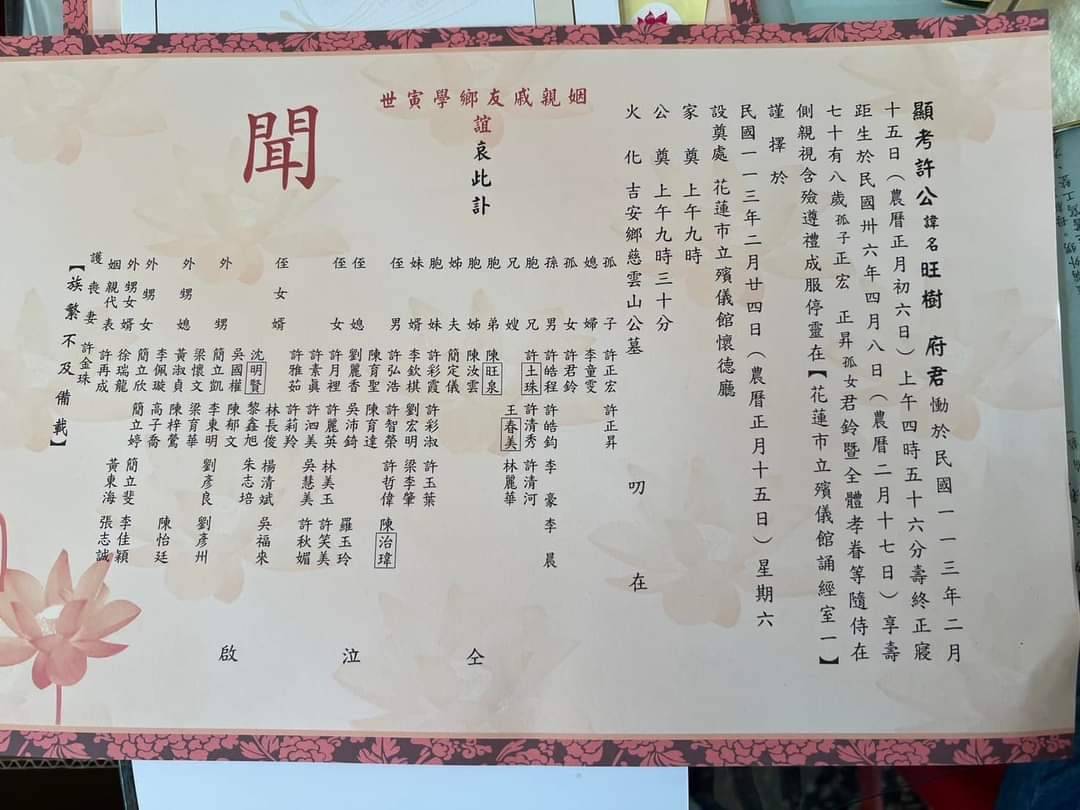 顯考許公諱名旺樹 府君慟於民國一一三年二月
十五日(農曆正月初六日)上午四時五十六分壽終正寢
距生於民國卅六年四月八日(農曆二月十七日)享壽
七十有八歲孤子正宏 正昇孤女君鈴暨全體孝眷等隨侍在
側親視含殮遵禮成服停靈在【花蓮市立殯儀館誦經室一】
謹擇於
民國一一三年二月廿四日(農曆正月十五日)星期六
設奠處 花蓮市立殯儀館懷德廳
家奠 上午九時
公奠 上午九時三十分
火化 吉安鄉慈雲山公墓 叨在
姻親戚友鄉學寅世
誼哀此訃
聞
孤子 許正宏 許正昇
媳婦 李童雯
孤女 許君鈴
孫男 許皓程 許皓鈞 李豪 李晨
胞兄 許土珠 許清秀 許清河
兄嫂 王春美 林麗華
胞弟 陳旺泉
胞姊 陳汝雲
姊夫 簡定儀
胞妹 許彩霞 許彩淑 許玉葉
妹婿 李欽棋 劉宏明 梁李肇
侄男 許弘浩 許智榮 許哲偉 陳治瑋
陳育聖 陳育達
侄媳 劉麗香 吳沛錡 羅玉玲
侄女 許月裡 許麗英 林美玉 許笑美
許素真 許泗美 吳慧美 許秋媚
許雅茹 許莉羚
侄女婿 林長俊 楊清斌 吳福來
沈明賢 黎鑫旭 朱志培
外甥 吳國權 陳郁文
簡立凱 李東明 劉彥良 劉彥州
外甥媳 梁懷文 梁育華
黃淑貞 陳梓鶯 陳怡廷
李佩璇 高子喬
外甥女 簡立欣 簡立婷 簡立斐 李佳穎
外甥女婿 徐瑞龍 黃東海 張志誠
姻親代表 許再成
護喪妻 許金珠
【族繁不及備載】
仝泣啟